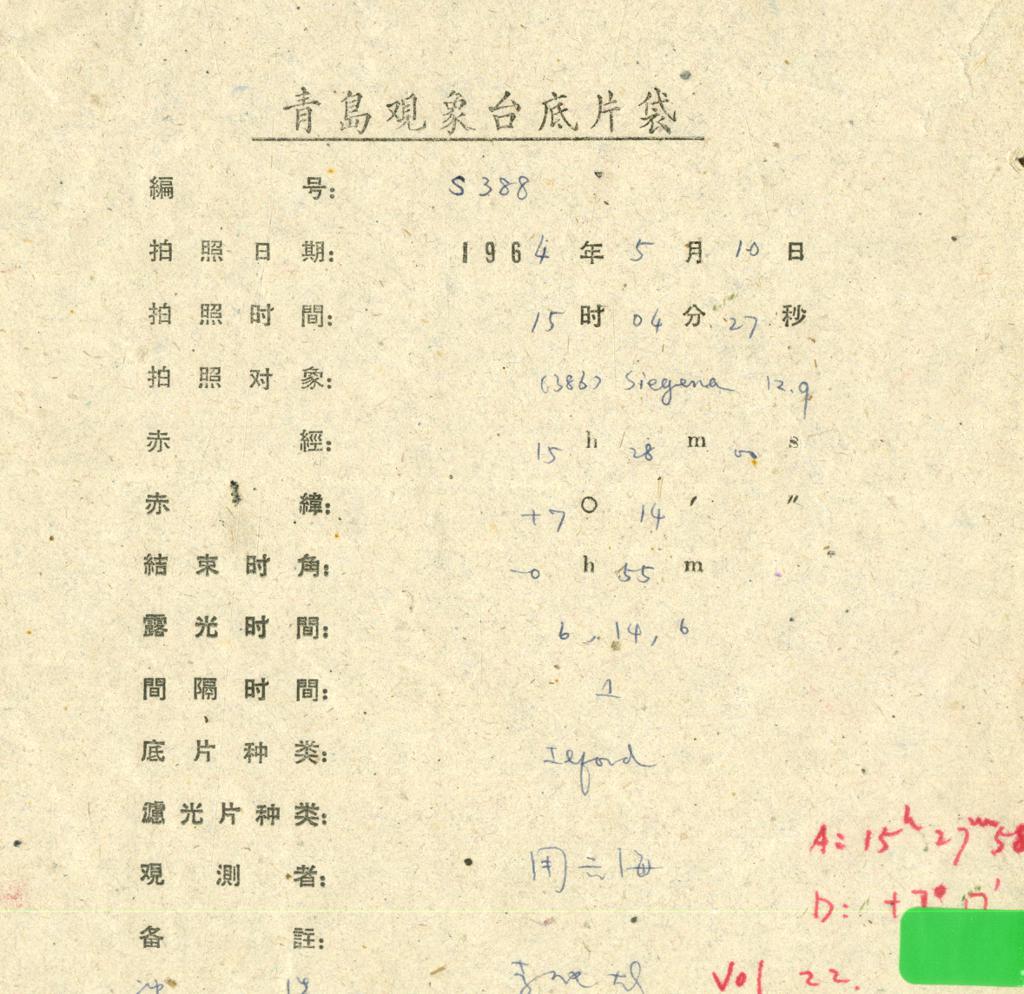 青島观象台底片袋
編号: S388
拍照日期: 1964年5月10日
拍照时間: 15时04分27秒
拍照对象: (386) Siegena 12.9
赤經: 15h 28m 00s
赤緯: +7° 14′ ″
結束时角: -0h 55m
露光时間: 6, 14, 6
間隔时間: 1
底片种类: Ilford
濾光片种类:
A: 15h 27m 58
观測者:
D: +7° 17′
备註:
Vol 22.